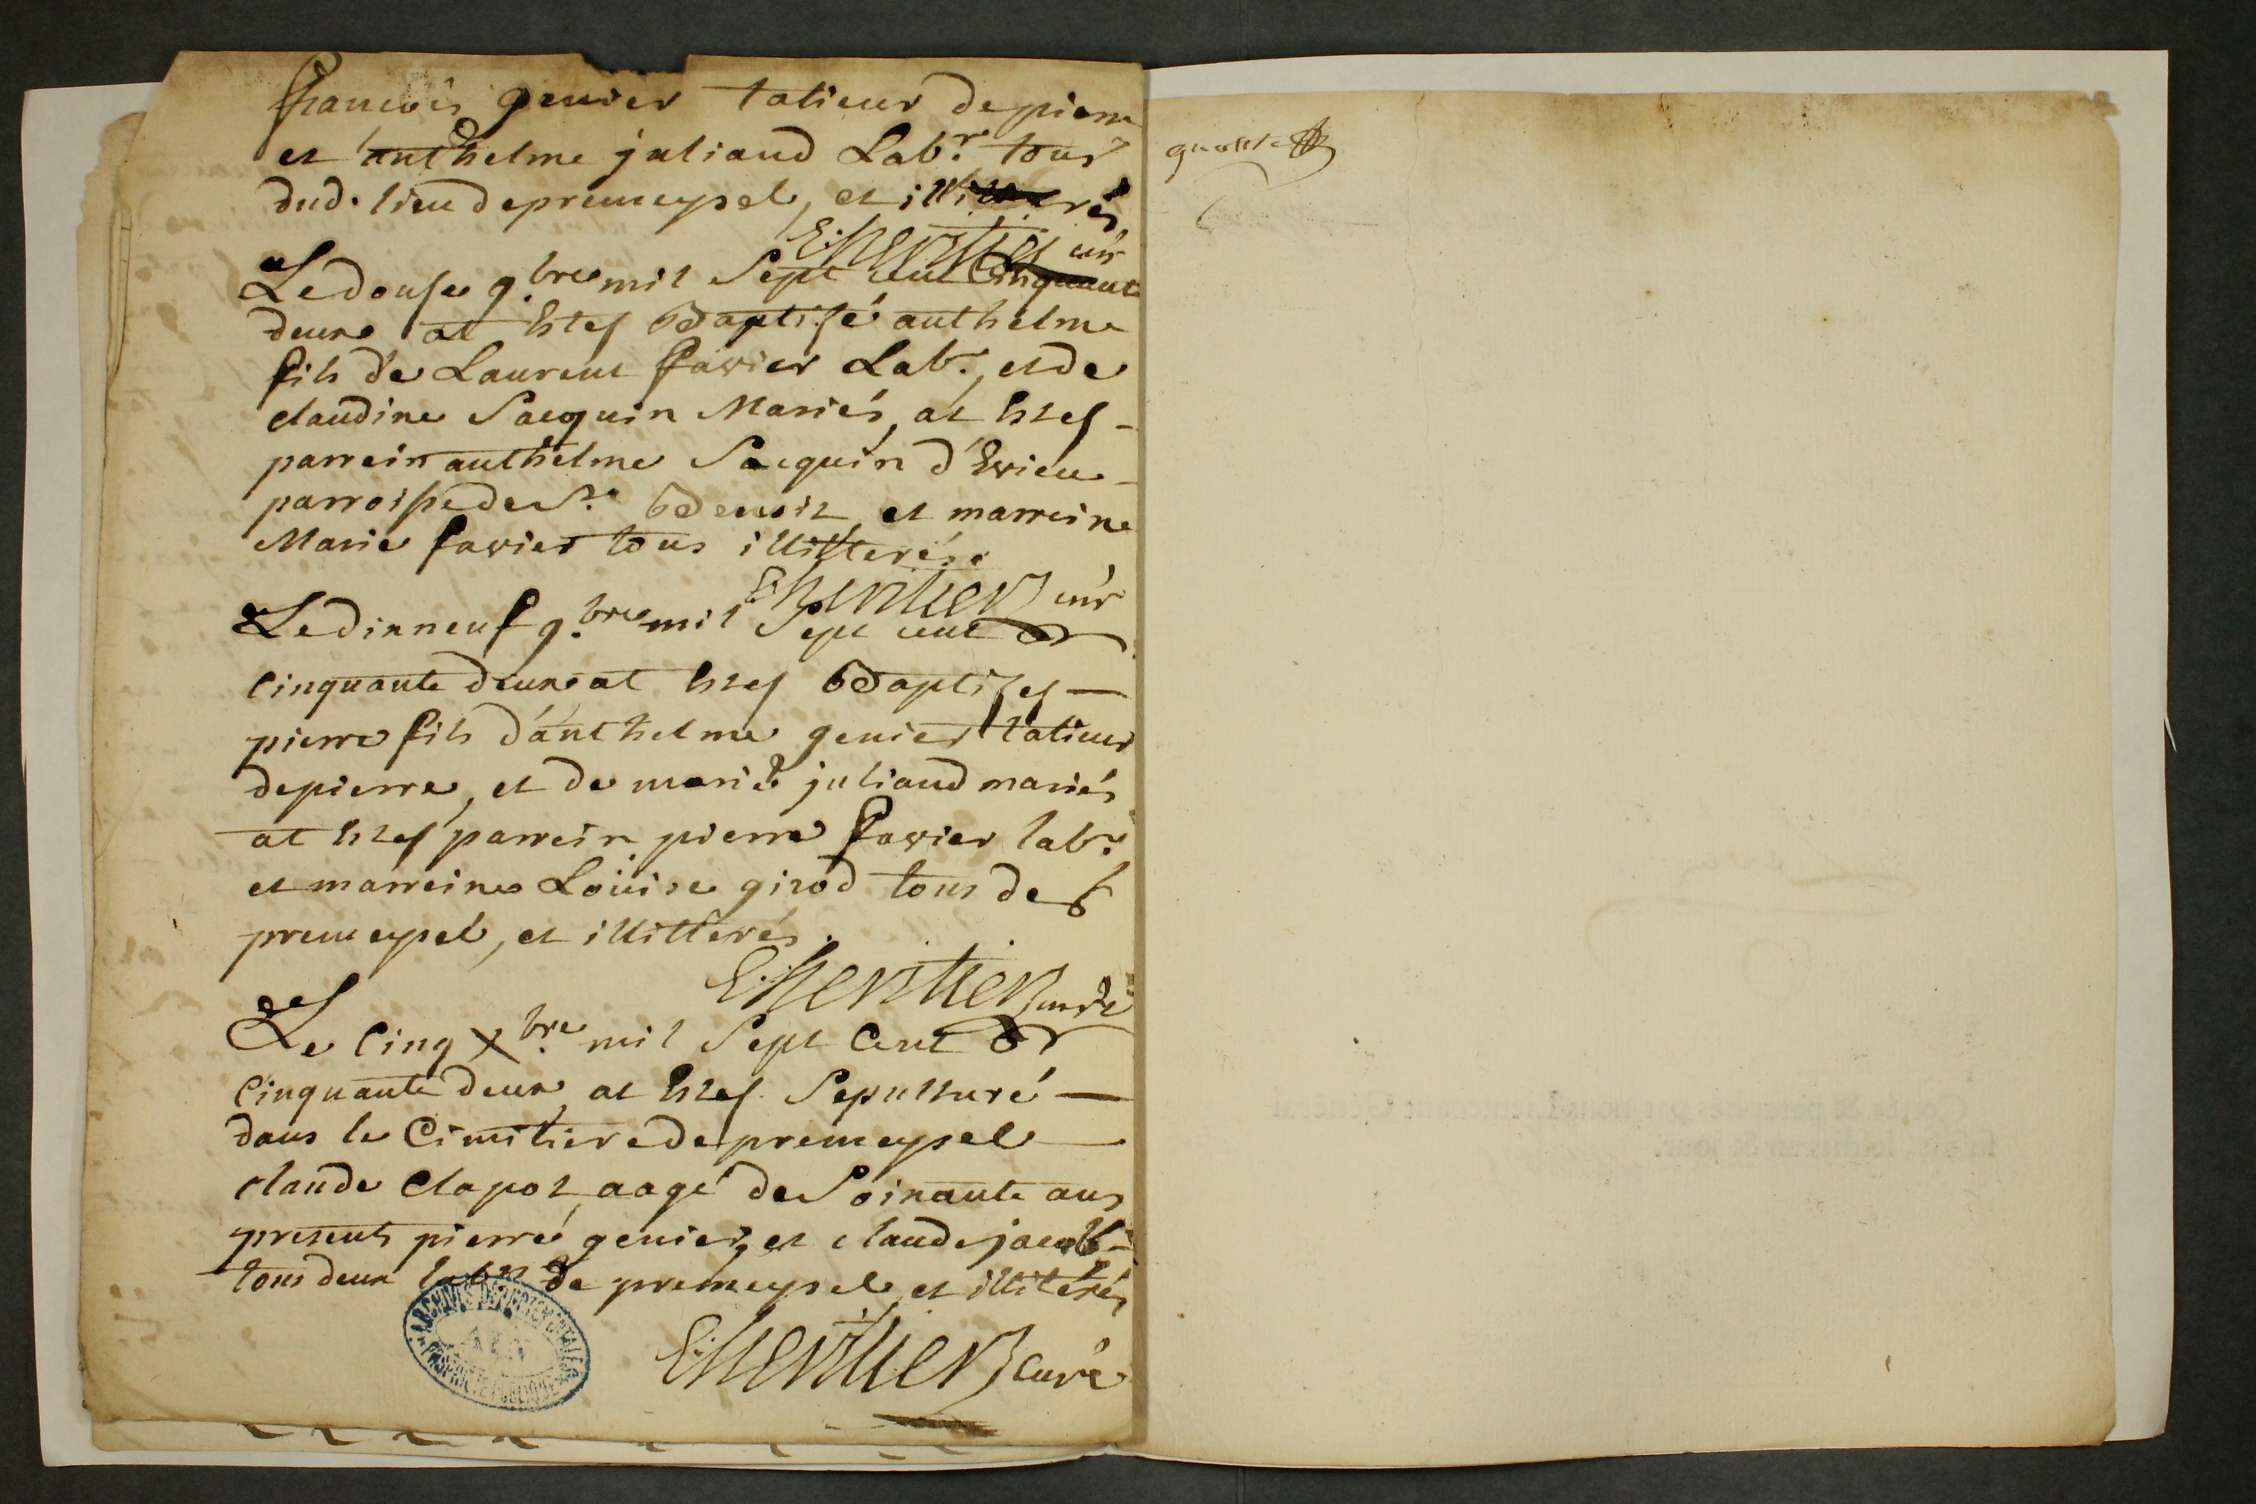 francois genier talieur de pierre
et anthelme juliand Labr. tous
dud. lieu de premeysel, et illiterés
E: heritier curé
Le douse 9.bre mil Sept cent Cinquante
deux at estes Baptisé anthelme
fils de Laurent favier Labr. et de
claudine Sacquin Mariés, at estes
parrein anthelme Sacquin d'Evieu
parroisse de St. Benoit et marreine
Marie favier tous illitterés.
E: heritier curé
Le dixneuf 9.bre mil Sept cent
Cinquante deux at estes Baptises
pierre fils d'anthelme genier talieur
de pierre, et de marie juliand mariés
at estes parrein pierre favier labr.
et marreine Loüise girod tous de
premeysel, et illitterés.
E: heritier curé
Le Cinq Xbre. mil Sept Cent
Cinquante deux at estes Sepulturé
dans le Cimitiere de premeysel
claude Clapot aagé de Soixante ans
presents pierre genier, et claude jacob
tous deux labrs de premeysel et illiterés
E: heritier Curé
ARCHIVES DEPARTEMENTALES
AIN
PROPRIETE PUBLIQUE